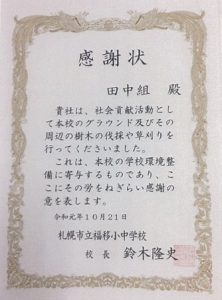 感謝状
田中組 殿
貴社は、社会貢献活動とし
て本校のグラウンド及びその
周辺の樹木の伐採や草刈りを
行ってくださいました。
これは、本校の学校環境整
備に寄与するものであり、こ
こにその労をねぎらい感謝の
意を表します。
令和元年10月21日
札幌市立福移小中学校
校長 鈴木隆史